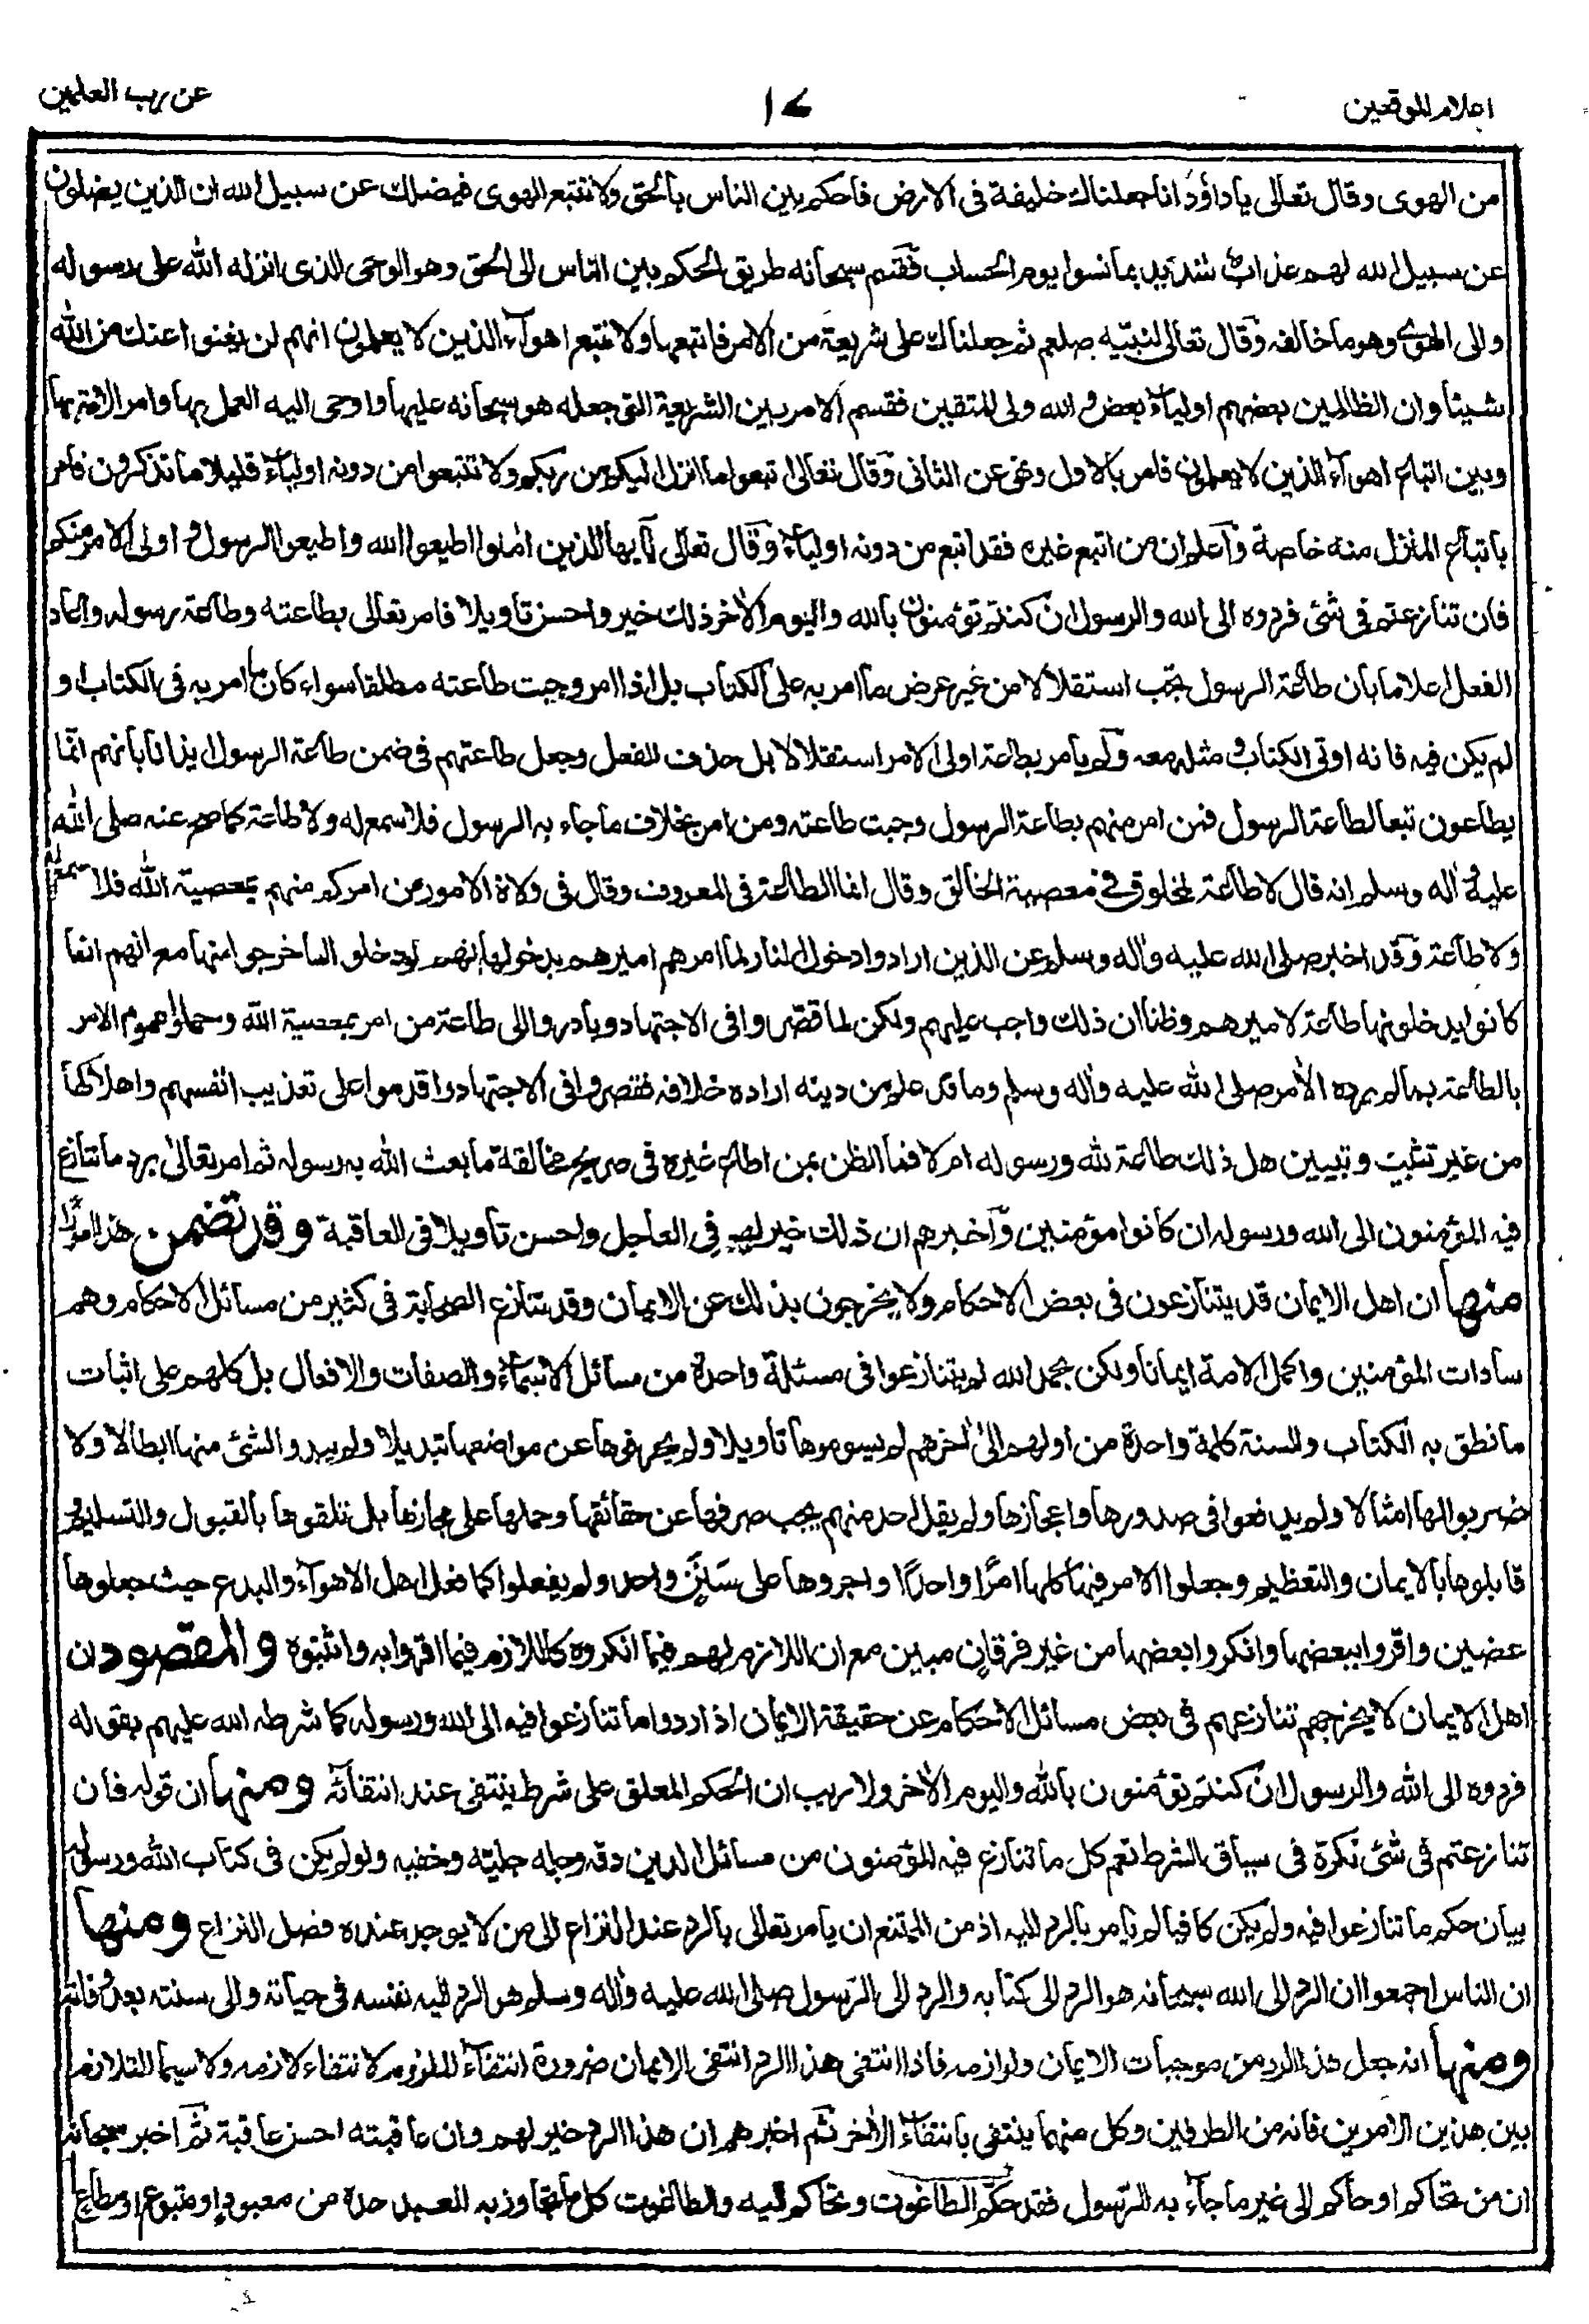 اعلام الموقعين
١٧
عن رب العلمين
من الهوى وقال تعالى ياداؤد انا جعلناك خليفة فى الارض فاحكم بين الناس بالحق ولا تتبع الهوى فيضلك عن سبيل الله ان الذين يضلون
عن سبيل الله لهم عذاب شديد بما نسوا يوم الحساب فقسم سبحانه طريق الحكم بين الناس الى الحق وهو الوحى الذى انزله الله على رسوله
والى الهوى وهو ما خالفه وقال تعالى لنبيه صلعم ثم جعلناك على شريعة من الامر فاتبعها ولا تتبع اهوآء الذين لا يعلمون انهم لن يغنوا عنك من الله
شيئا وان الظالمين بعضهم اولياء بعض والله ولى المتقين فقسم الامر بين الشريعة التى جعله هو سبحانه عليها واوحى اليه العمل بها وامر الامة بها
وبين اتباع اهوآء الذين لا يعلمون فامر بالاول ونهى عن الثانى وقال تعالى اتبعوا ما انزل اليكم من ربكم ولا تتبعوا من دونه اولياء قليلا ما تذكرون فامر
باتباع المنزل منه خاصة وأعلم ان من اتبع غيره فقد اتبع من دونه اولياء وقال تعالى يآايها الذين امنوا اطيعوا الله واطيعوا الرسول واولى الامر منكم
فان تنازعتم فى شئ فردوه الى الله والرسول ان كنتم تؤمنون بالله واليوم الاخر ذلك خير واحسن تاويلا فامر تعالى بطاعته وطاعة رسوله واعاد
الفعل اعلاما بان طاعة الرسول تجب استقلالا من غير عرض ما امر به على الكتاب بل اذا امر وجبت طاعته مطلقا سواء كان ما امر به فى الكتاب او
لم يكن فيه فانه اوتى الكتاب ومثله معه ولم يامر بطاعة اولى الامر استقلالا بل حذف الفعل وجعل طاعتهم فى ضمن طاعة الرسول ايذانا بانهم انما
يطاعون تبعا لطاعة الرسول فمن امر منهم بطاعة الرسول وجبت طاعته ومن امر بخلاف ما جاء به الرسول فلا سمع له ولا طاعة كما صح عنه صلى الله
عليه وآله وسلم انه قال لا طاعة لمخلوق فى معصية الخالق وقال انما الطاعة فى المعروف وقال فى ولاة الامور من امركم منهم بمعصية الله فلا سمع له
ولا طاعة وقد اخبر صلى الله عليه وآله وسلم عن الذين ارادوا دخول النار لما امرهم اميرهم بدخولها انهم لو دخلوا لما خرجوا منها مع انهم انما
كانوا يدخلونها طاعة لاميرهم وظنا ان ذلك واجب عليهم ولكن لما قصروا فى الاجتهاد وبادروا الى طاعة من امر بمعصية الله وحملوا عموم الامر
بالطاعة بما لم يرده الآمر صلى الله عليه وآله وسلم وما قد علم من دينه ارادة خلافه فقصروا فى الاجتهاد واقدموا على تعذيب انفسهم واهلاكها
من غير تثبيت وتبيين هل ذلك طاعة لله ورسوله ام لا فما الظن بمن اطاع غيره فى صريح مخالفة ما بعث الله به رسوله ثم امر تعالى برد ما تنازع
فيه المؤمنون الى الله ورسوله ان كانوا مؤمنين وآخبرهم ان ذلك خير لهم فى العاجل واحسن تاويلا فى العاقبة وقد تضمن هذا امورا
منها ان اهل الايمان قد يتنازعون فى بعض الاحكام ولا يخرجون بذلك عن الايمان وقد تنازع الصحابة فى كثير من مسائل الاحكام وهم
سادات المؤمنين واكمل الامة ايمانا ولكن بحمد الله لم يتنازعوا فى مسئلة واحدة من مسائل الاسماء والصفات والافعال بل كلهم على اثبات
ما نطق به الكتاب والسنة كلمة واحدة من اولهم الى اخرهم لم يسوموها تاويلا ولم يحرفوها عن مواضعها تبديلا ولم يبدوا لشئ منها ابطالا ولا
ضربوا لها امثالا ولم يدفعوا فى صدورها واعجازها ولم يقل احد منهم يجب صرفها عن حقائقها وحملها على مجازها بل تلقوها بالقبول والتسليم و
قابلوها بالايمان والتعظيم وجعلوا الامر فيها كلها امرا واحدا واجروها على سنن واحد ولم يفعلوا كما فعل اهل الاهوآء والبدع حيث جعلوها
عضين واقروا ببعضها وانكروا بعضها من غير فرقان مبين مع ان اللازم لهم فيما انكروه كاللازم فيما اقروا به واثبتوه والمقصود ان
اهل الايمان لا يخرجهم تنازعهم فى بعض مسائل الاحكام عن حقيقة الايمان اذا ردوا ما تنازعوا فيه الى الله ورسوله كما شرطه الله عليهم بقوله
فردوه الى الله والرسول ان كنتم تؤمنون بالله واليوم الاخر ولا ريب ان الحكم المعلق على شرط ينتفى عند انتفائه ومنها ان قوله فان
تنازعتم فى شئ نكرة فى سياق الشرط تعم كل ما تنازع فيه المؤمنون من مسائل الدين دقه وجله جليه وخفيه ولو لم يكن فى كتاب الله ورسوله
بيان حكم ما تنازعوا فيه ولم يكن كافيا لم يامر بالرد اليه اذ من الممتنع ان يامر تعالى بالرد عند النزاع الى من لا يوجد عنده فصل النزاع ومنها
ان الناس اجمعوا ان الرد الى الله سبحانه هو الرد الى كتابه والرد الى الرسول صلى الله عليه وآله وسلم هو الرد اليه نفسه فى حياته والى سنته بعد وفاته
ومنها انه جعل هذا الرد من موجبات الايمان ولوازمه فاذا انتفى هذا الرد انتفى الايمان ضرورة انتفاء الملزوم لانتفاء لازمه ولا سيما التلازم
بين هذين الامرين فانه من الطرفين وكل منهما ينتفى بانتفاء الاخر ثم اخبرهم ان هذا الرد خير لهم وان عاقبته احسن عاقبة ثم اخبر سبحانه
ان من تحاكم او حاكم الى غير ما جآء به الرسول فقد حكم الطاغوت وتحاكم اليه والطاغوت كل ما تجاوز به العبد حده من معبود او متبوع او مطاع